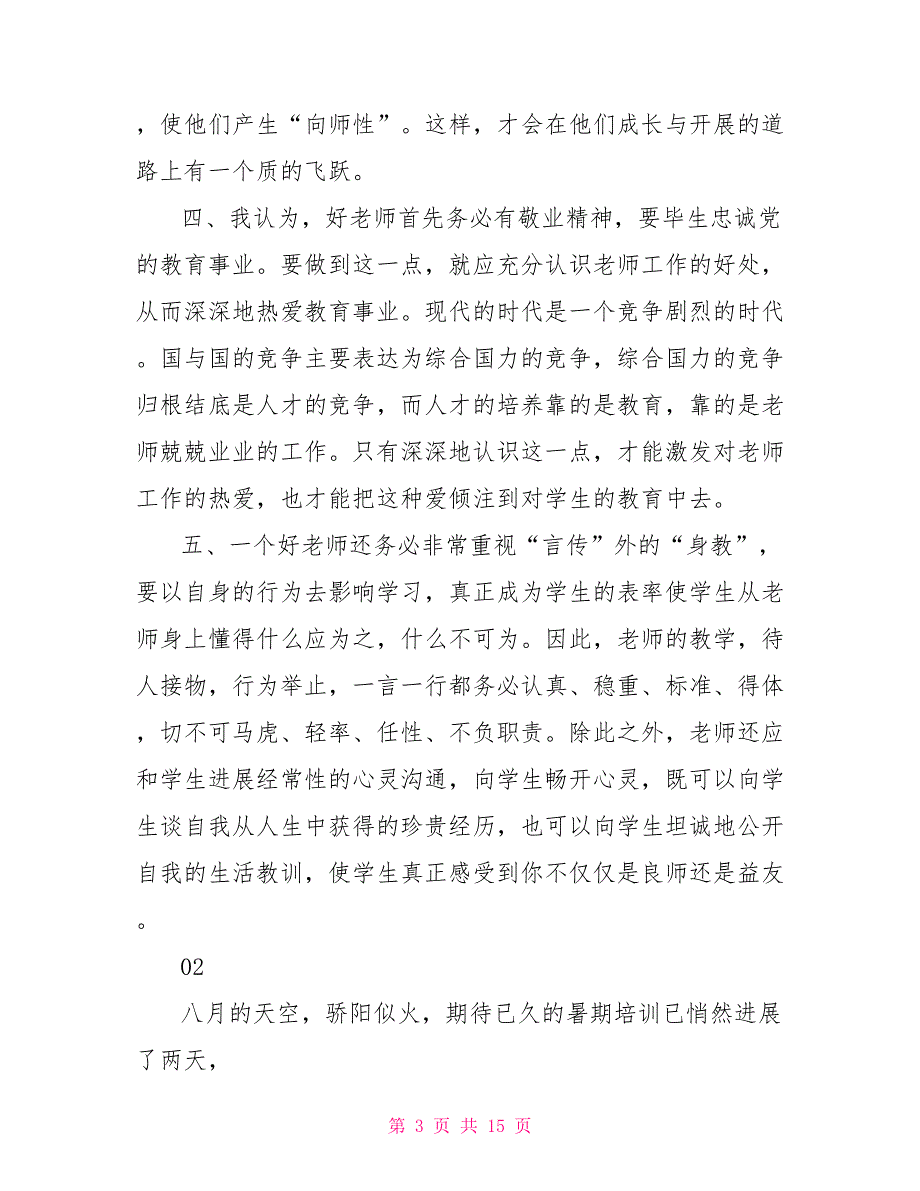 ，使他们产生“向师性”。这样，才会在他们成长与开展的道
路上有一个质的飞跃。
四、我认为，好老师首先务必有敬业精神，要毕生忠诚党
的教育事业。要做到这一点，就应充分认识老师工作的好处，
从而深深地热爱教育事业。现代的时代是一个竞争剧烈的时代
。国与国的竞争主要表达为综合国力的竞争，综合国力的竞争
归根结底是人才的竞争，而人才的培养靠的是教育，靠的是老
师兢兢业业的工作。只有深深地认识这一点，才能激发对老师
工作的热爱，也才能把这种爱倾注到对学生的教育中去。
五、一个好老师还务必非常重视“言传”外的“身教”，
要以自身的行为去影响学习，真正成为学生的表率使学生从老
师身上懂得什么应为之，什么不可为。因此，老师的教学，待
人接物，行为举止，一言一行都务必认真、稳重、标准、得体
，切不可马虎、轻率、任性、不负职责。除此之外，老师还应
和学生进展经常性的心灵沟通，向学生畅开心灵，既可以向学
生谈自我从人生中获得的珍贵经历，也可以向学生坦诚地公开
自我的生活教训，使学生真正感受到你不仅仅是良师还是益友
。
02
八月的天空，骄阳似火，期待已久的暑期培训已悄然进展
了两天，
第 3 页 共 15 页